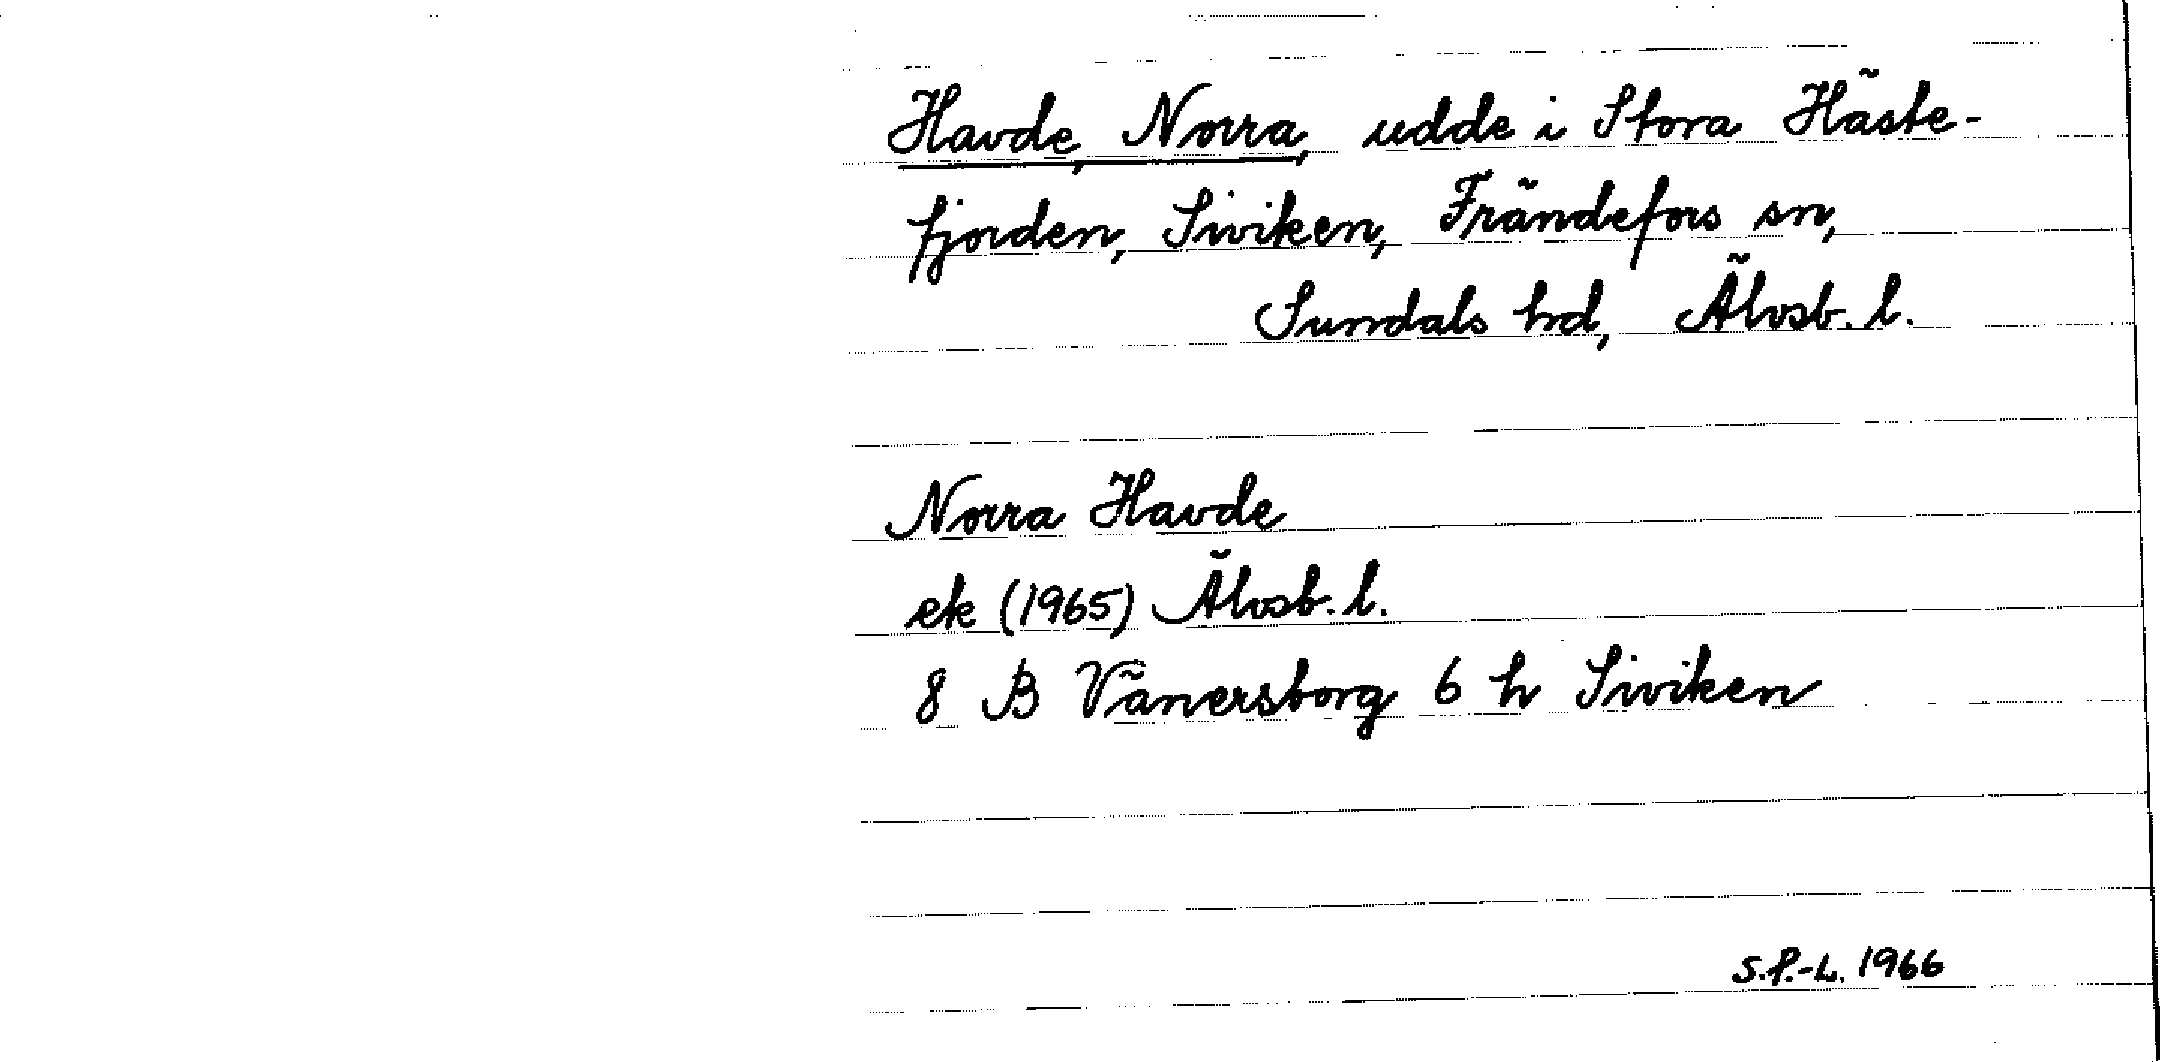 Havde, Norra, udde i Stora Häste-
fjorden, Siviken, Frändefors sn,
Sundals hd, Älvsb. l.
Norra Havde
ek (1965) Älvsb. l.
8 B Vänersborg 6 h Siviken
S.P.-L. 1966